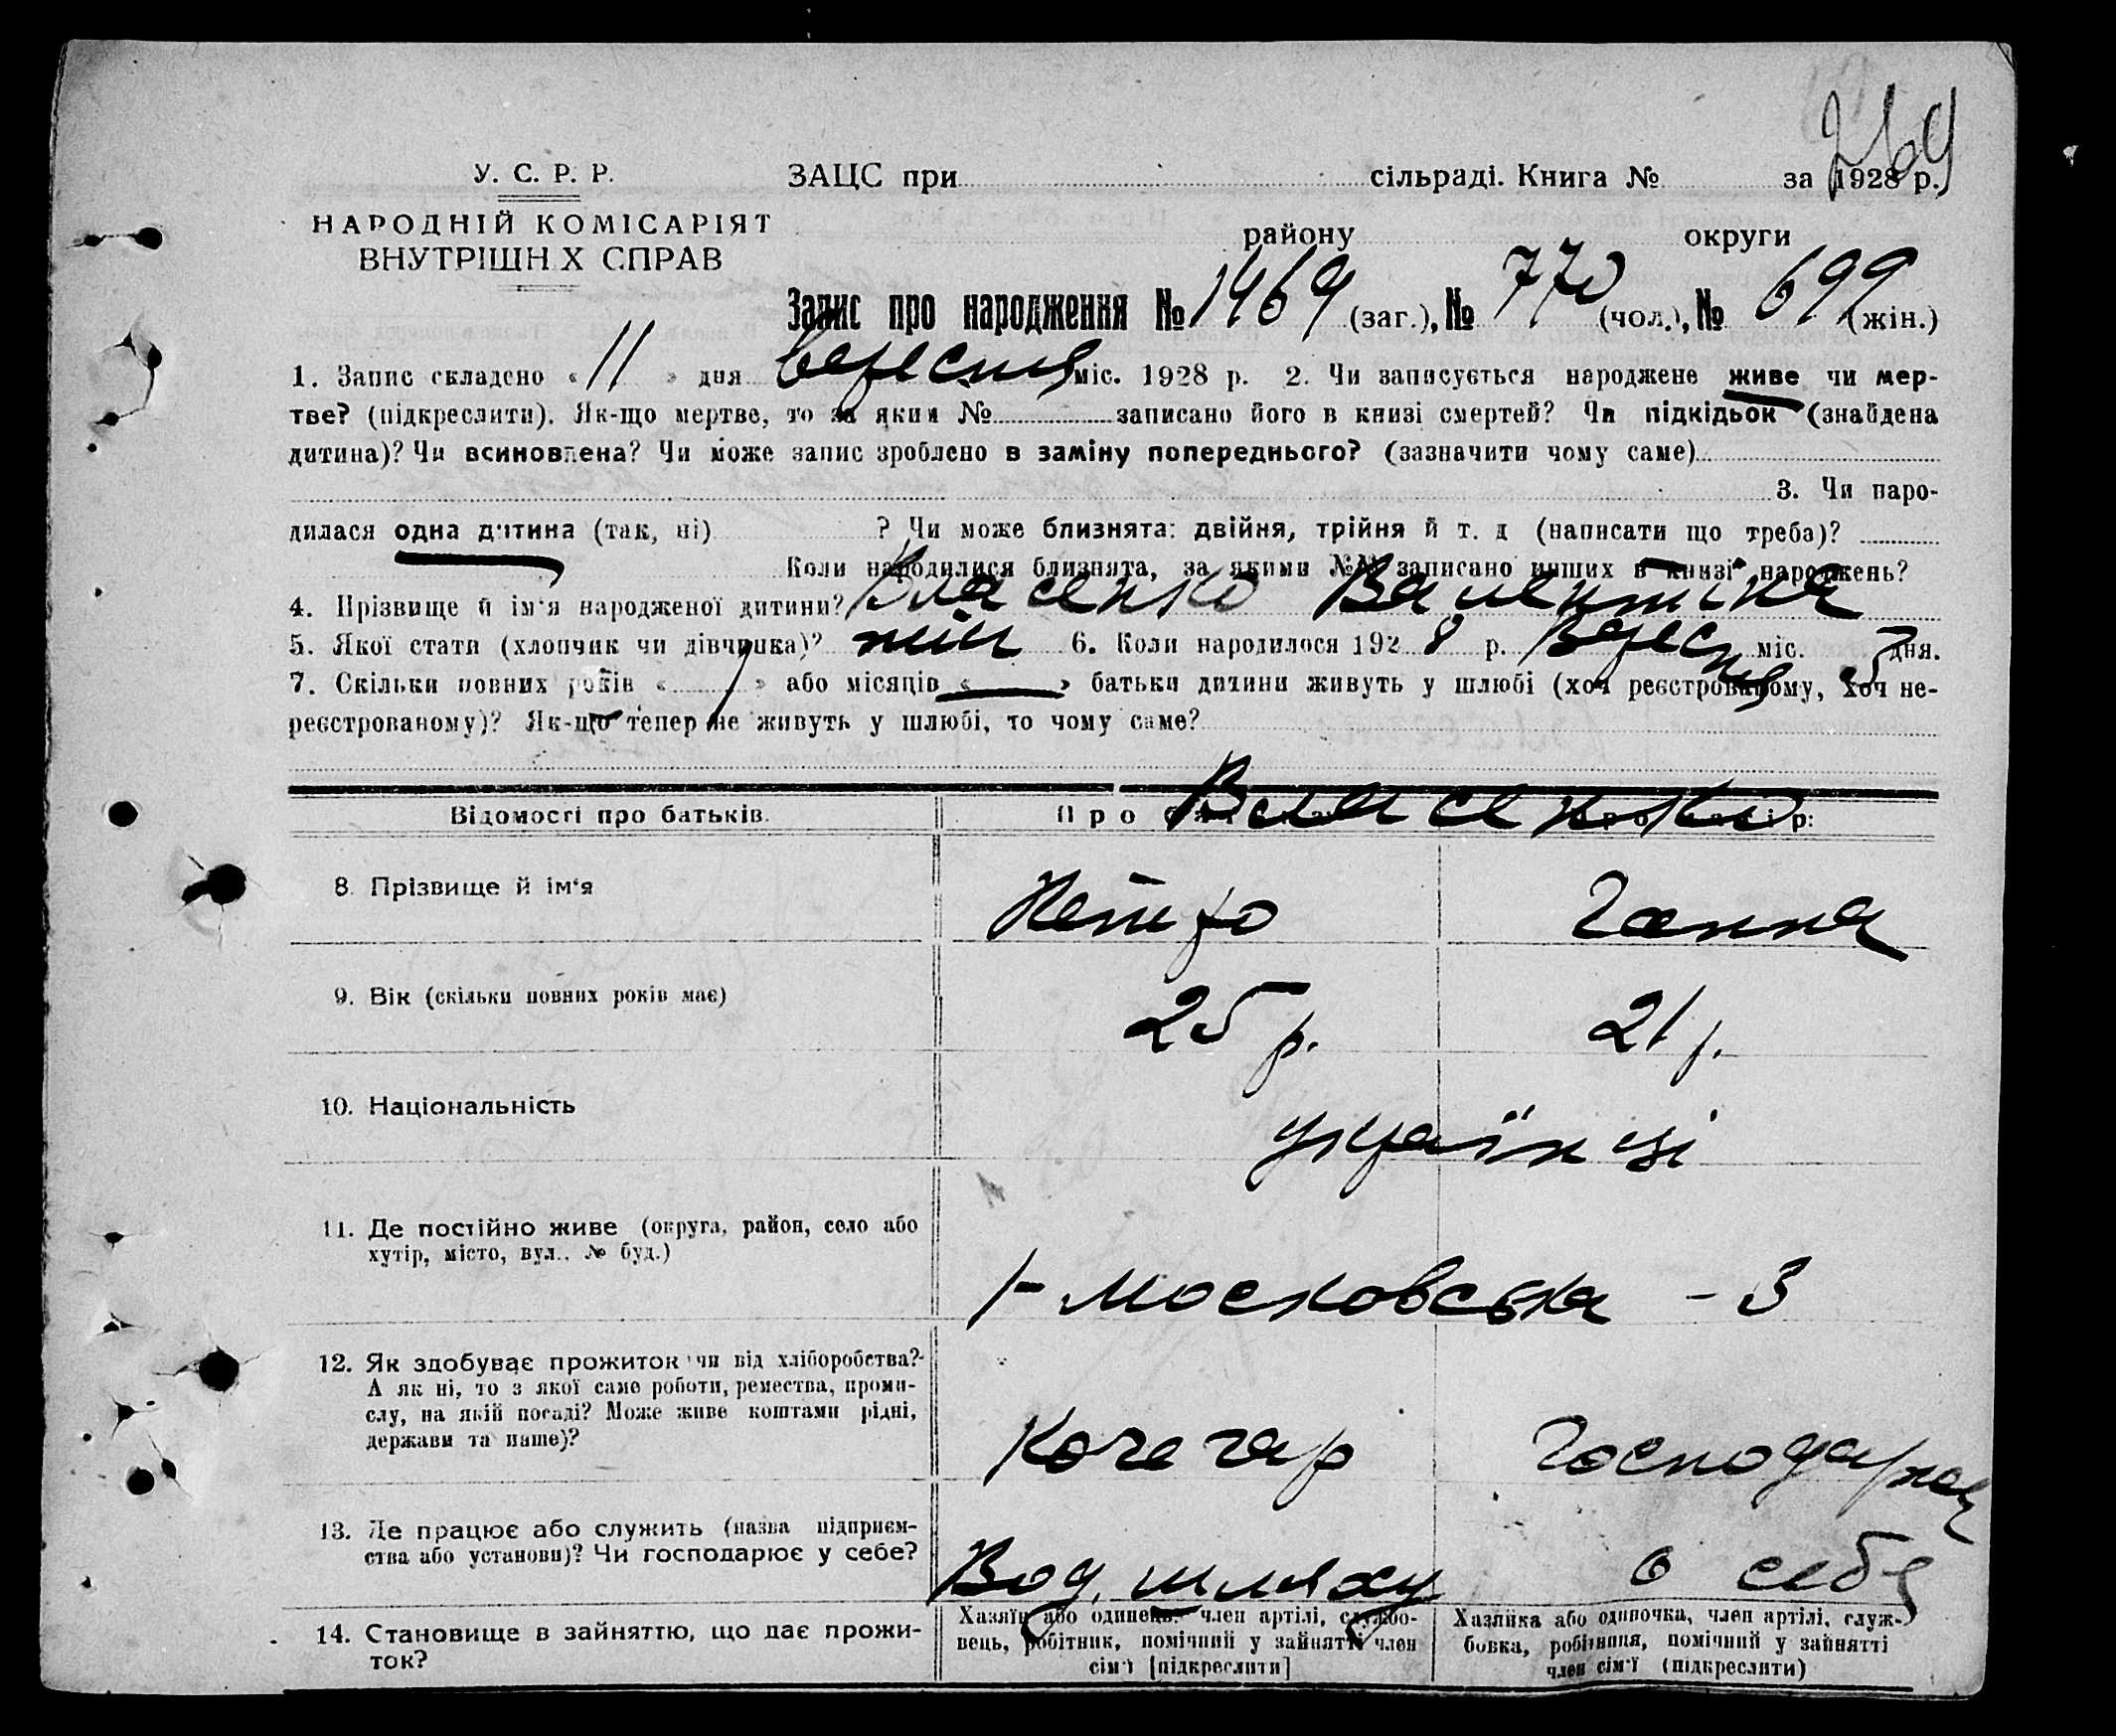 269
У. С. Р. Р.
ЗАЦС при сільраді. Книга № за 1928 р.
НАРОДНІЙ КОМІСАРІЯТ
ВНУТРІШН Х СПРАВ
району округи
Запис про народження № 1469 (заг.), № 770 (чол.), № 699 (жін.)
1. Запис складено « 11 » дня вересня міс. 1928 р. 2. Чи записується народжене живе чи мер-
тве? (підкреслити). Як-що мертве, то за яким № записано його в книзі смертей? Чи підкідьок (знайдена
дитина)? Чи всиновлена? Чи може запис зроблено в заміну попереднього? (зазначити чому саме)
3. Чи наро-
дилася одна дитина (так, ні) ? Чи може близнята: двійня, трійня й т. д (написати що треба)?
Коли народилися близнята, за якими №№ записано инших в книзі народжень?
4. Прізвище й ім'я народженої дитини? Власенко Валентіна
5. Якої стати (хлопчик чи дівчинка)? жін 6. Коли народилося 1928 р. Вересня міс. 5 дня.
7. Скільки повних років « 1 » або місяців « — » батьки дитини живуть у шлюбі (хоч реєстрованому, хоч не-
реєстрованому)? Як-що тепер не живуть у шлюбі, то чому саме?
Відомості про батьків. Власенко
8. Прізвище й ім'я Петро Ганна
9. Вік (скільки повних років має) 25 р. 21 р.
10. Національність українці
11. Де постійно живе (округа, район, село або
хутір, місто, вул.. № буд.)
1-Московська - 3
12. Як здобуває прожиток чи від хліборобства?
А як ні, то з якої саме роботи, ремества, проми-
слу, на якій посаді? Може живе коштами рідні,
держави та инше)?
Кочегар Господарка
13. Де працює або служить (назва підприєм-
ства або установи)? Чи господарює у себе?
Вод. шляху в себе
14. Становище в зайняттю, що дає прожи-
ток?
Хазяїн або одинець, член артілі, службо-
вець, робітник, помічний у зайнятті член
сім'ї [підкреслити]
Хазяйка або одиночка, член артілі, служ-
бовка, робітниця, помічний у зайнятті
член сім'ї (підкреслити)